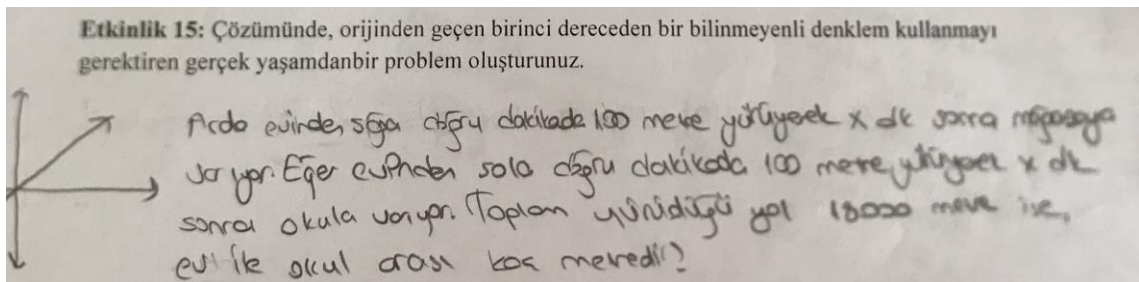 Etkinlik 15: Çözümünde, orijinden geçen birinci dereceden bir bilinmeyenli denklem kullanmayı
gerektiren gerçek yaşamdanbir problem oluşturunuz.
Arda evinden sağa doğru dakikada 100 metre yürüyerek x dk sonra mağazaya
varıyor. Eğer evinden sola doğru dakikada 100 metre yürüyerek x dk
sonra okula varıyor. Toplam yürüdüğü yol 18000 metre ise,
evi ile okul arası kaç metredir?